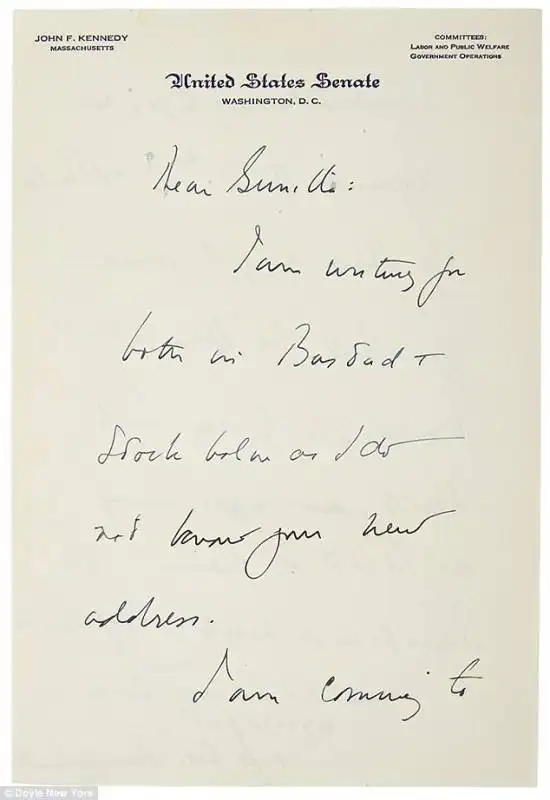 JOHN F. KENNEDY
MASSACHUSETTS
COMMITTEES:
LABOR AND PUBLIC WELFARE
GOVERNMENT OPERATIONS
United States Senate
WASHINGTON, D. C.
Dear Gunilla:
I am writing you
both in Bastad +
Stockholm as I do
not know your new
address.
I am coming to
© Doyle New York